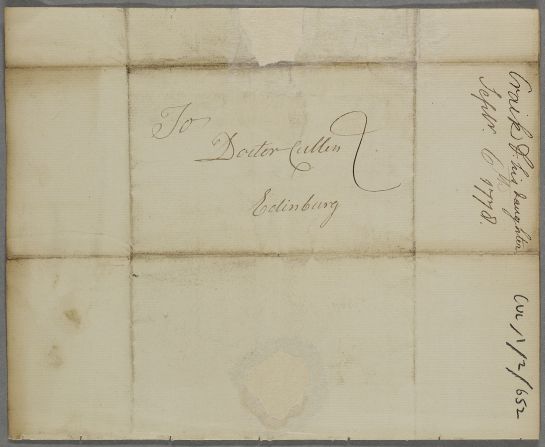 To
Doctor Cullen
Edinburg
Craik & his daughter
Septr. 6th 1778.
CUL/1/2/652